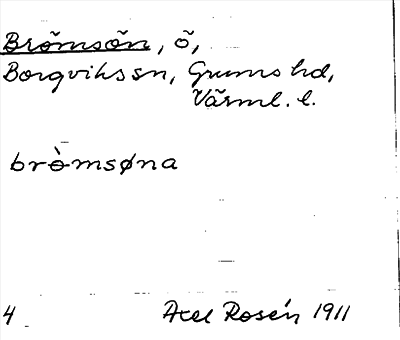 Brömsön, ö,
Borgviks sn, Grums hd,
Värml. l.
bròmsøna
4 Axel Rosén 1911